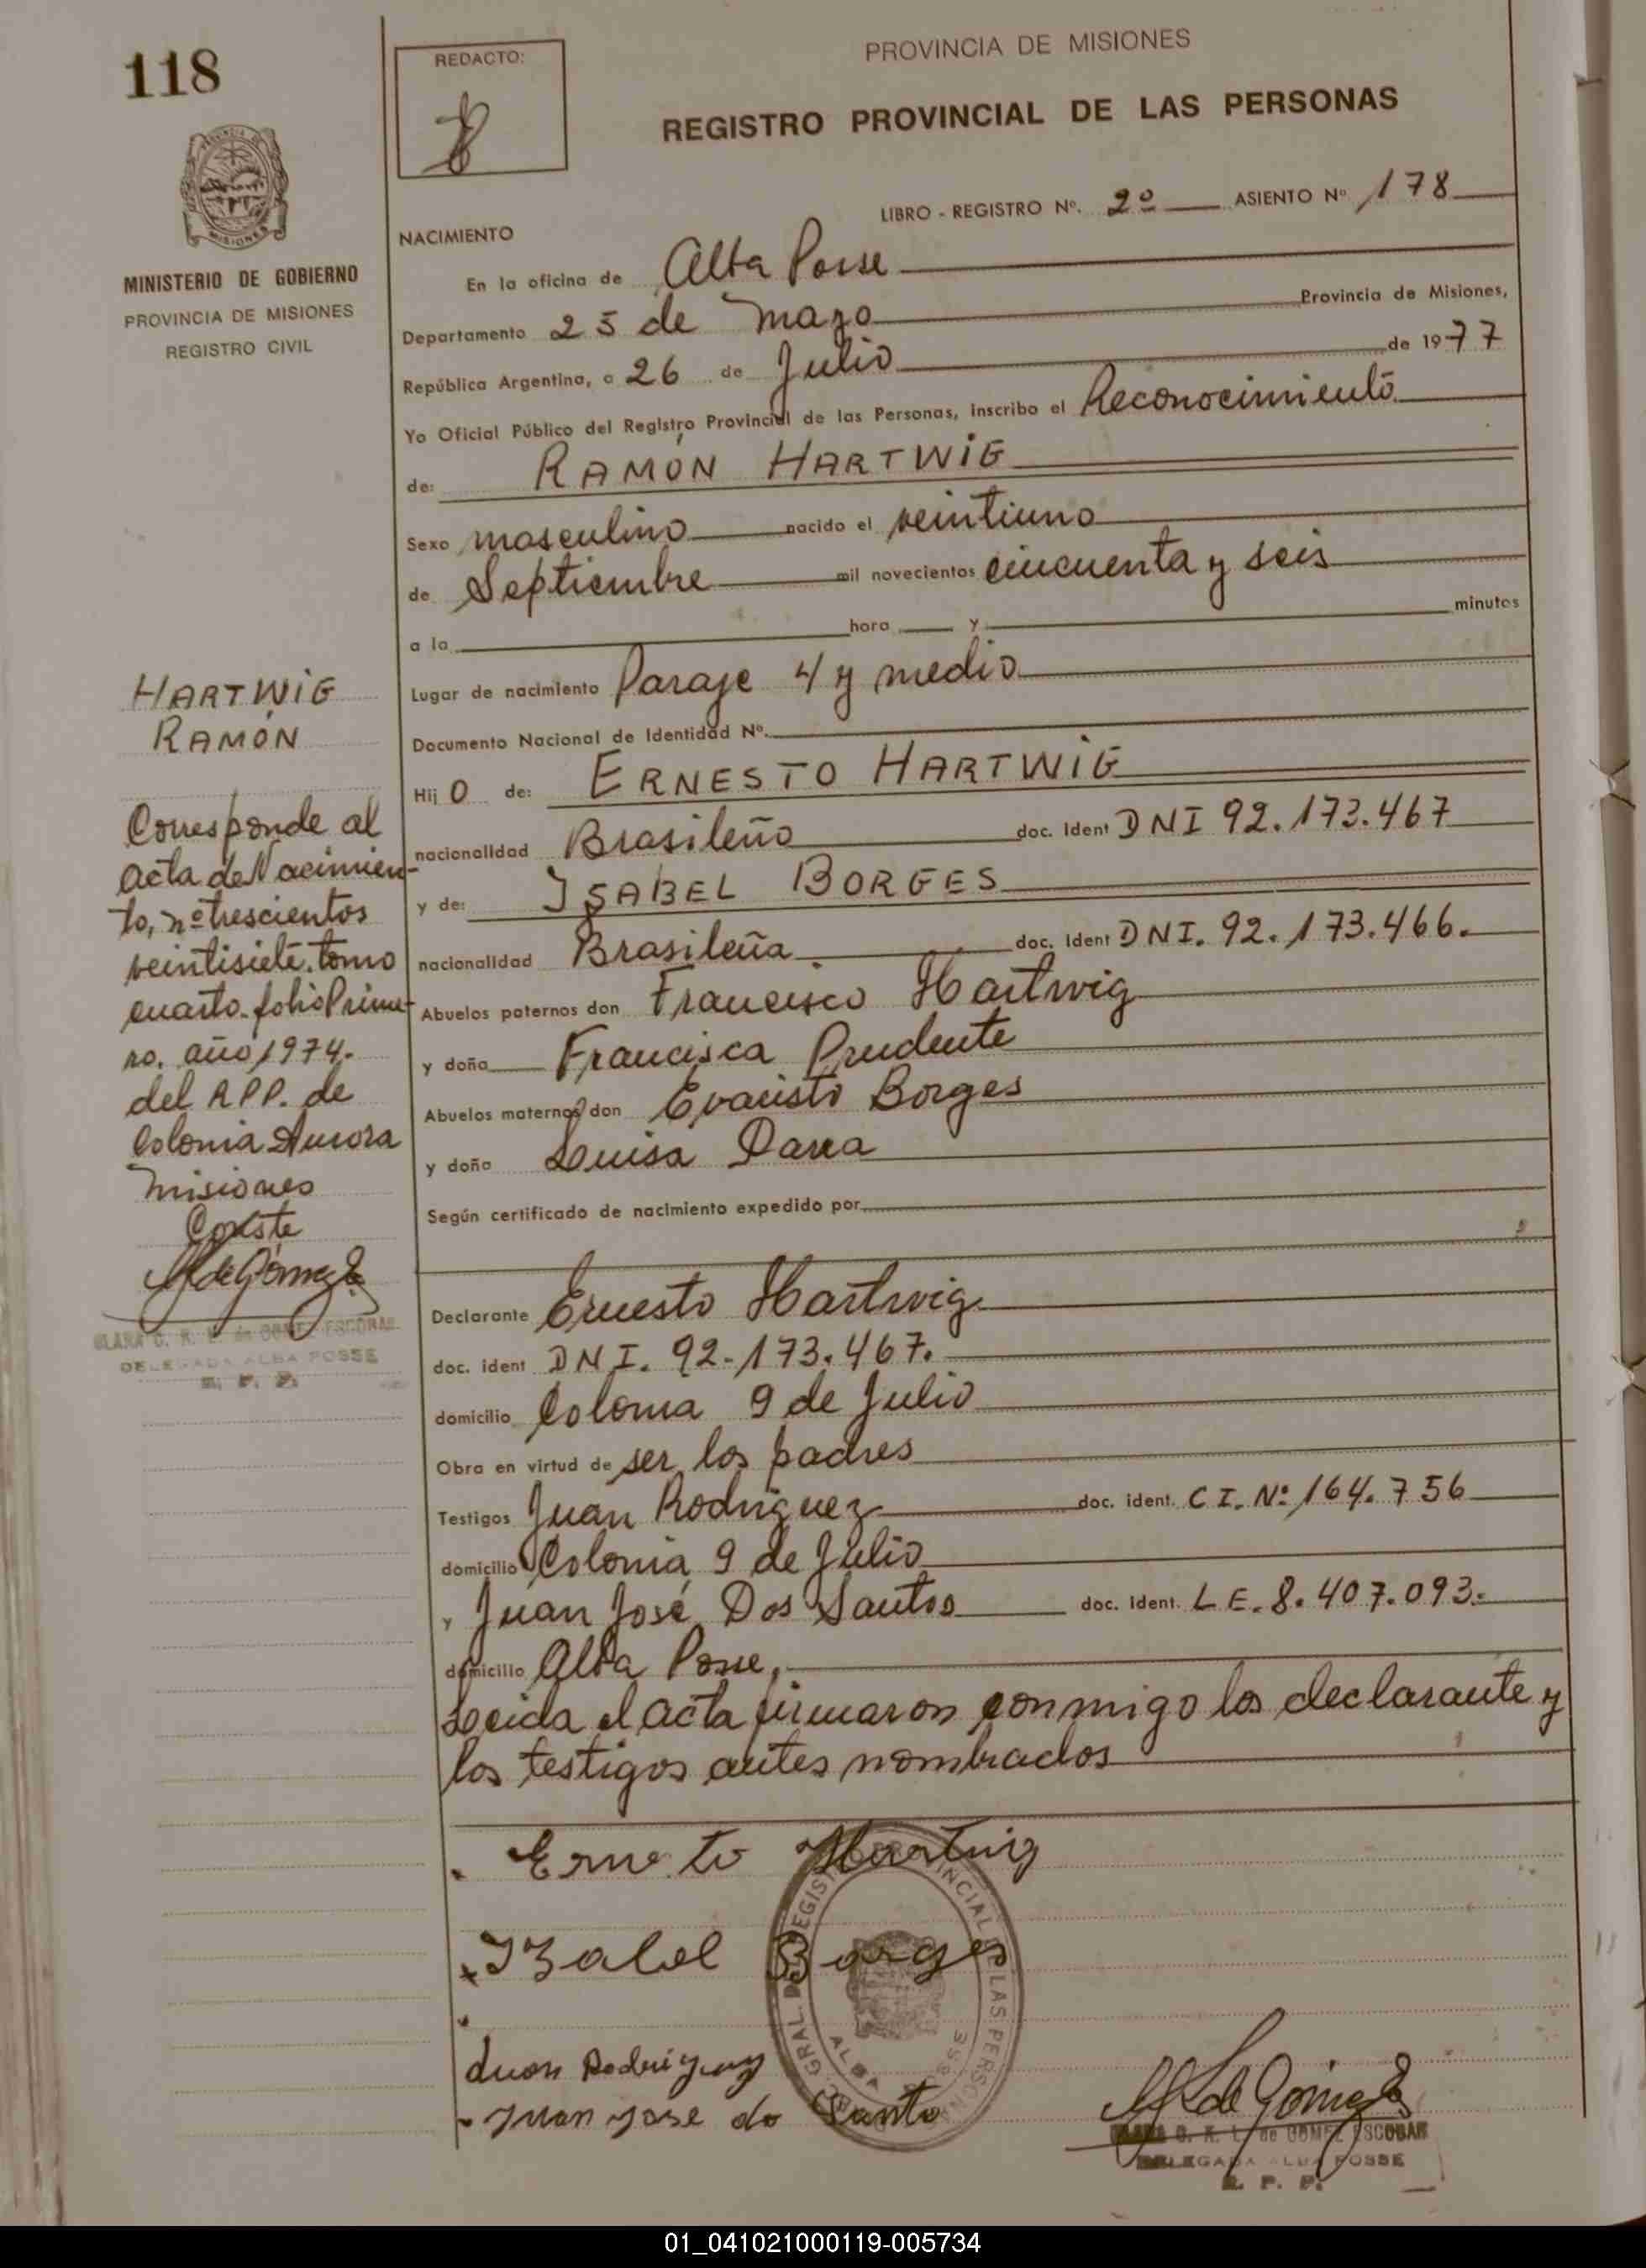 118
REDACTO:
PROVINCIA DE MISIONES
REGISTRO PROVINCIAL DE LAS PERSONAS
MISIONES
MINISTERIO DE GOBIERNO
PROVINCIA DE MISIONES
REGISTRO CIVIL
LIBRO - REGISTRO Nº. 2º ASIENTO Nº 178
NACIMIENTO
En la oficina de Alba Posse
Departamento 25 de mayo Provincia de Misiones,
República Argentina, a 26 de Julio de 1977
Yo Oficial Público del Registro Provincial de las Personas, inscribo el Reconocimiento
de: RAMÓN HARTWIG
Sexo masculino nacido el veintiuno
de Septiembre mil novecientos cincuenta y seis
a la hora y minutos
Lugar de nacimiento Paraje 4 y medio
Documento Nacional de Identidad Nº.
Hij O de: ERNESTO HARTWIG
nacionalidad Brasileño doc. Ident DNI 92.173.467
y de: ISABEL BORGES
nacionalidad Brasileña doc. Ident DNI. 92.173.466.
Abuelos paternos don Francisco Hartwig
y doña Francisca Prudente
Abuelos maternos don Evaristo Borges
y doña Luisa
Según certificado de nacimiento expedido por
Declarante Ernesto Hartwig
doc. ident DNI. 92.173.467.
domicilio Colonia 9 de Julio
Obra en virtud de ser los padres
Testigos Juan Rodriguez doc. ident. C I. Nº 164.756
domicilio Colonia 9 de Julio
y Juan José Dos Santos doc. Ident. L E. 8.407.093.
domicilio Alba Posse,
Leida el acta firmaron conmigo los declarante y
los testigos antes nombrados
HARTWIG
RAMÓN
Corresponde al
Acta de Nacimien-
to, nº trescientos
veintisiete. tomo
cuarto. folio Prime-
ro. año 1974.
del RPP. de
Colonia Aurora
Misiones
Conste
de Gómez
CLARA de GOMEZ ESCOBAR
DELEGADA ALBA POSSE
R. P. P.
Ernesto Hartwig
Izabel Borges
Juan Rodriguez
Juan Jose do Santo
ALBA POSSE
de Gómez
CLARA de GOMEZ ESCOBAR
DELEGADA ALBA POSSE
R. P. P.
01_041021000119-005734